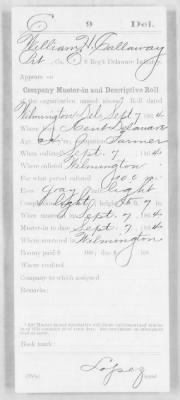 C 9 Del.
William H. Callaway
Pvt., Co. 8 Reg't Delaware Infantry.
Appears on
Company Muster-in and Descriptive Roll
of the organization named above. Roll dated
Wilmington Del Sept 7, 1864.
Where born Kent Delaware
Age y'rs; occupation Farmer
When enlisted Sept. 7, 1864.
Where enlisted Wilmington
For what period enlisted years.
Eyes Gray; hair light
Complexion light; height ft. in.
When mustered in Sept. 7, 1864.
Muster-in to date Sept. 7, 1864.
Where mustered in Wilmington
Bounty paid $ 100; due $ 100
Where credited
Company to which assigned
Remarks:
Book mark:
Lopez
Copyist.